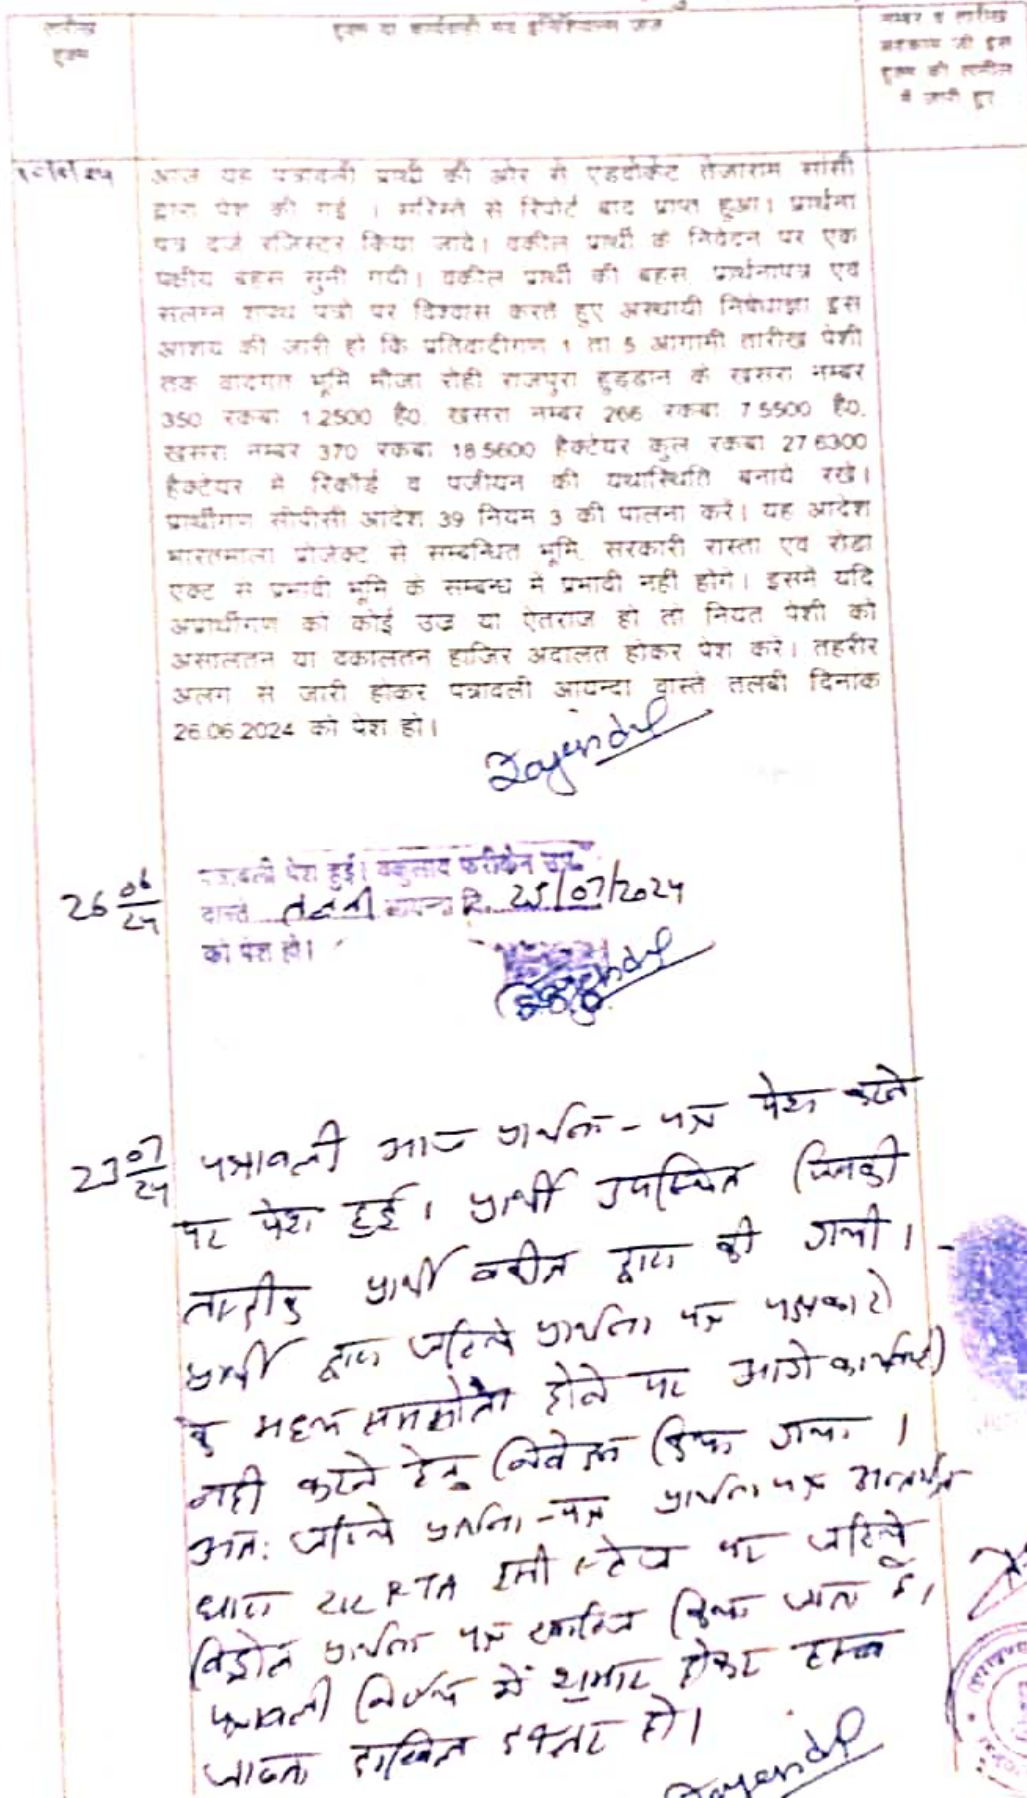 तारीख
हुक्म
हुक्म या कार्यवाही मय इनिशियल्स जज
नम्बर व तारीख
अहकाम जो इस
हुक्म की तामील
में जारी हुए
आज यह पत्रावली प्रार्थी की ओर से एडवोकेट तेजाराम सांसी
द्वारा पेश की गई । सरिस्ते से रिपोर्ट बाद प्राप्त हुआ। प्रार्थना
पत्र दर्ज रजिस्टर किया जावे। वकील प्रार्थी के निवेदन पर एक
पक्षीय बहस सुनी गयी। वकील प्रार्थी की बहस, प्रार्थनापत्र एवं
सलग्न शपथ पत्रो पर विश्वास करते हुए अस्थायी निषेधाज्ञा इस
आशय की जारी हो कि प्रतिवादीगण 1 ता 5 आगामी तारीख पेशी
तक वादगत भूमि मौजा रोही राजपुरा हुडडान के खसरा नम्बर
350 रकबा 1.2500 है0, खसरा नम्बर 266 रकबा 7.5500 है0,
खसरा नम्बर 370 रकबा 18.5600 हैक्टेयर कुल रकबा 27.6300
हैक्टेयर में रिकॉर्ड व पंजीयन की यथास्थिति बनाये रखे।
प्रार्थीगण सीपीसी आदेश 39 नियम 3 की पालना करें। यह आदेश
भारतमाला प्रोजेक्ट से सम्बन्धित भूमि, सरकारी रास्ता एवं रोडा
एक्ट से प्रभावी भूमि के सम्बन्ध में प्रभावी नहीं होगे। इसमे यदि
अप्रार्थीगण को कोई उज्र या ऐतराज हो तो नियत पेशी को
असालतन या वकालतन हाजिर अदालत होकर पेश करे। तहरीर
अलग से जारी होकर पत्रावली आयन्दा वास्ते तलबी दिनांक
26.06.2024 को पेश हो।
26 06/24 पत्रावली पेश हुई। वकुलाय फरीकेन उप0
वास्ते तलबी आयन्दा दि. 25/07/2024
को पेश हो।
23 07/24 पत्रावली आज प्रार्थना-पत्र पेश करने
पर पेश हुई। प्रार्थी उपस्थित जिसकी
तस्दीक प्रार्थी वकील द्वारा की गयी।
प्रार्थी द्वारा जरिये प्रार्थना पत्र पक्षकारो
के मध्य समझोता होने पर आगे कार्यवाही
नही करने हेतु निवेदन किया गया।
अतः जरिये प्रार्थना-पत्र प्रार्थना पत्र अन्तर्गत
धारा 212 RTA इसी स्टेज पर जरिये
विड्रोल प्रार्थना पत्र खारिज किया जाता है।
पत्रावली निर्णय में शुमार होकर
जाब्ता दाखिल दफ्तर हो।